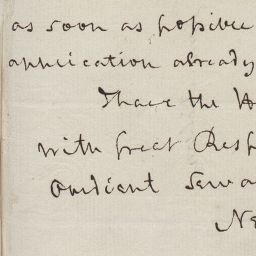 as soon as possible
application already
I have the H
with great Resp
Obedient Serva
Ne